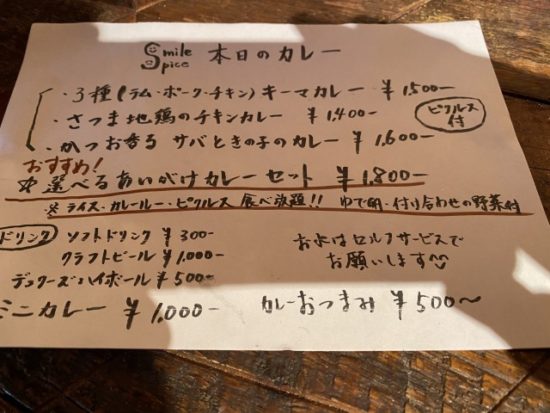 Smile Spice 本日のカレー
・3種(ラム・ポーク・チキン)キーマカレー ¥1,500ー
・さつま地鶏のチキンカレー ¥1,400ー
・かつお香る サバときの子のカレー ¥1,600ー
ピクルス付
おすすめ!
☆選べるあいがけカレーセット ¥1,800ー
※ライス・カレールー・ピクルス 食べ放題!! ゆで卵・付け合わせの野菜付
ドリンク ソフトドリンク ¥300ー
クラフトビール ¥1,000ー
デュワーズハイボール ¥500ー
お水はセルフサービスで
お願いします
ミニカレー ¥1,000ー
カレーおつまみ ¥500〜